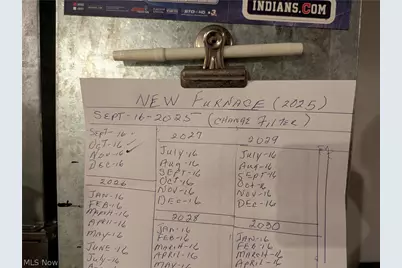 INDIANS.COM
NEW FURNACE (2025)
SEPT-16-2025 (CHANGE FILTER)
SEPT-16
OCT-16
NOV-16
DEC-16
2026
JAN-16
FEB-16
MARCH-16
APRIL-16
MAY-16
JUNE-16
JULY-16
2027
JULY-16
AUG-16
SEPT-16
OCT-16
NOV-16
DEC-16
2028
JAN-16
FEB-16
MARCH-16
APRIL-16
MAY-16
2029
JULY-16
AUG-16
SEPT-16
OCT-16
NOV-16
DEC-16
2030
JAN-16
FEB-16
MARCH-16
APRIL-16
MLS Now